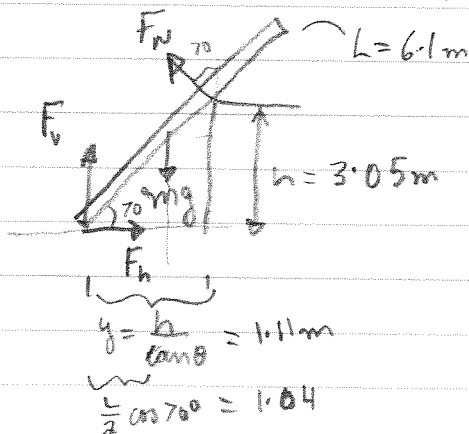 F_N
70
L = 6.1 m
F_v
mg
h = 3.05 m
70
F_h
y = h/tanθ = 1.11 m
L/2 cos 70° = 1.04